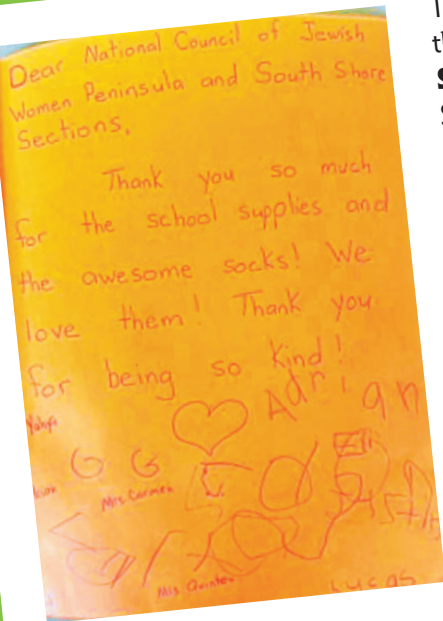 Dear National Council of Jewish
Women Peninsula and South Shore
Sections,
Thank you so much
for the school supplies and
the awesome socks! We
love them! Thank you
for being so kind!
Adrian
Yahya
G G
Mrs. Carmen
Eli
Mis Quinten
Lucas